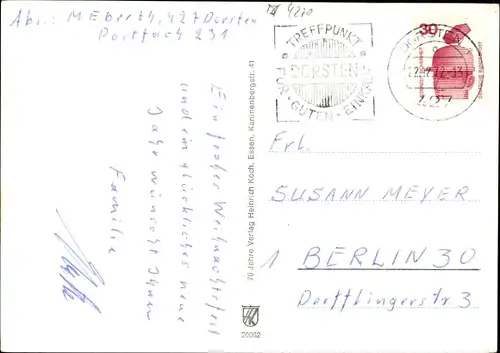 Abs.: M Eberth, 427 Dorsten
Postfach 231
TREFFPUNKT
DORSTEN
FÜR · GUTEN · EINKAUF
30
427
Ein frohes Weihnachtsfest
und ein glückliches neue
Jahr wünscht Ihnen
Familie
70 Jahre Verlag Heinrich Koch, Essen, Kaninenbergstr. 41
20062
Frl.
SUSANN MEYER
1 BERLIN 30
Derfflingerstr 3